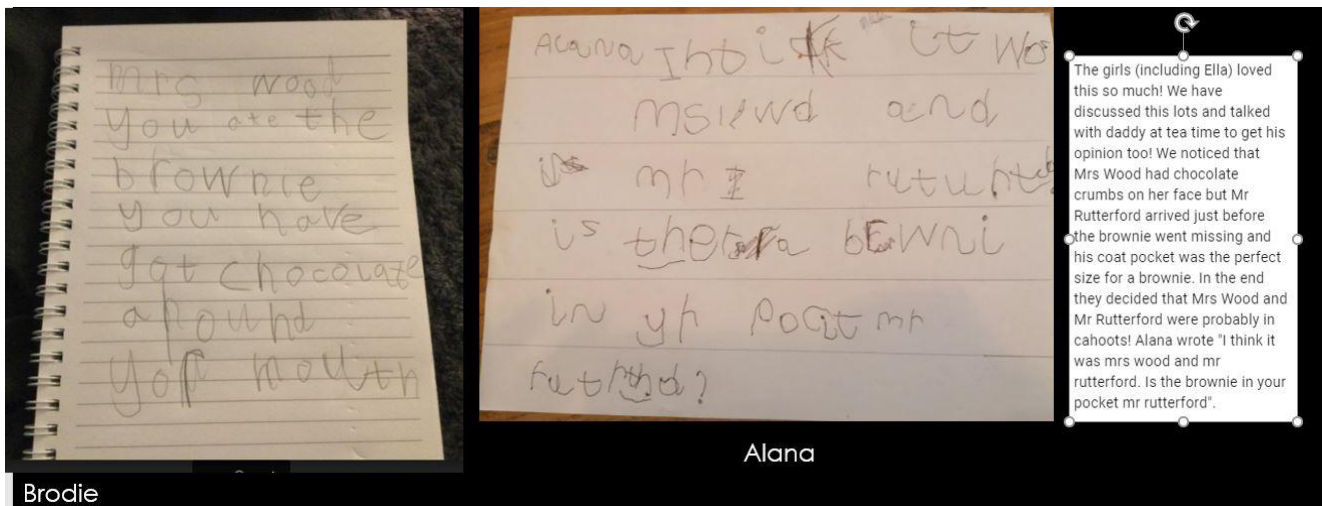 mrs wood
you ate the
brownie
you have
got chocolate
around
yor mouth
Brodie
Alana I thi it wos
and
mr
is a
in yr pocit mr
Alana
The girls (including Ella) loved
this so much! We have
discussed this lots and talked
with daddy at tea time to get his
opinion too! We noticed that
Mrs Wood had chocolate
crumbs on her face but Mr
Rutterford arrived just before
the brownie went missing and
his coat pocket was the perfect
size for a brownie. In the end
they decided that Mrs Wood and
Mr Rutterford were probably in
cahoots! Alana wrote "I think it
was mrs wood and mr
rutterford. Is the brownie in your
pocket mr rutterford".